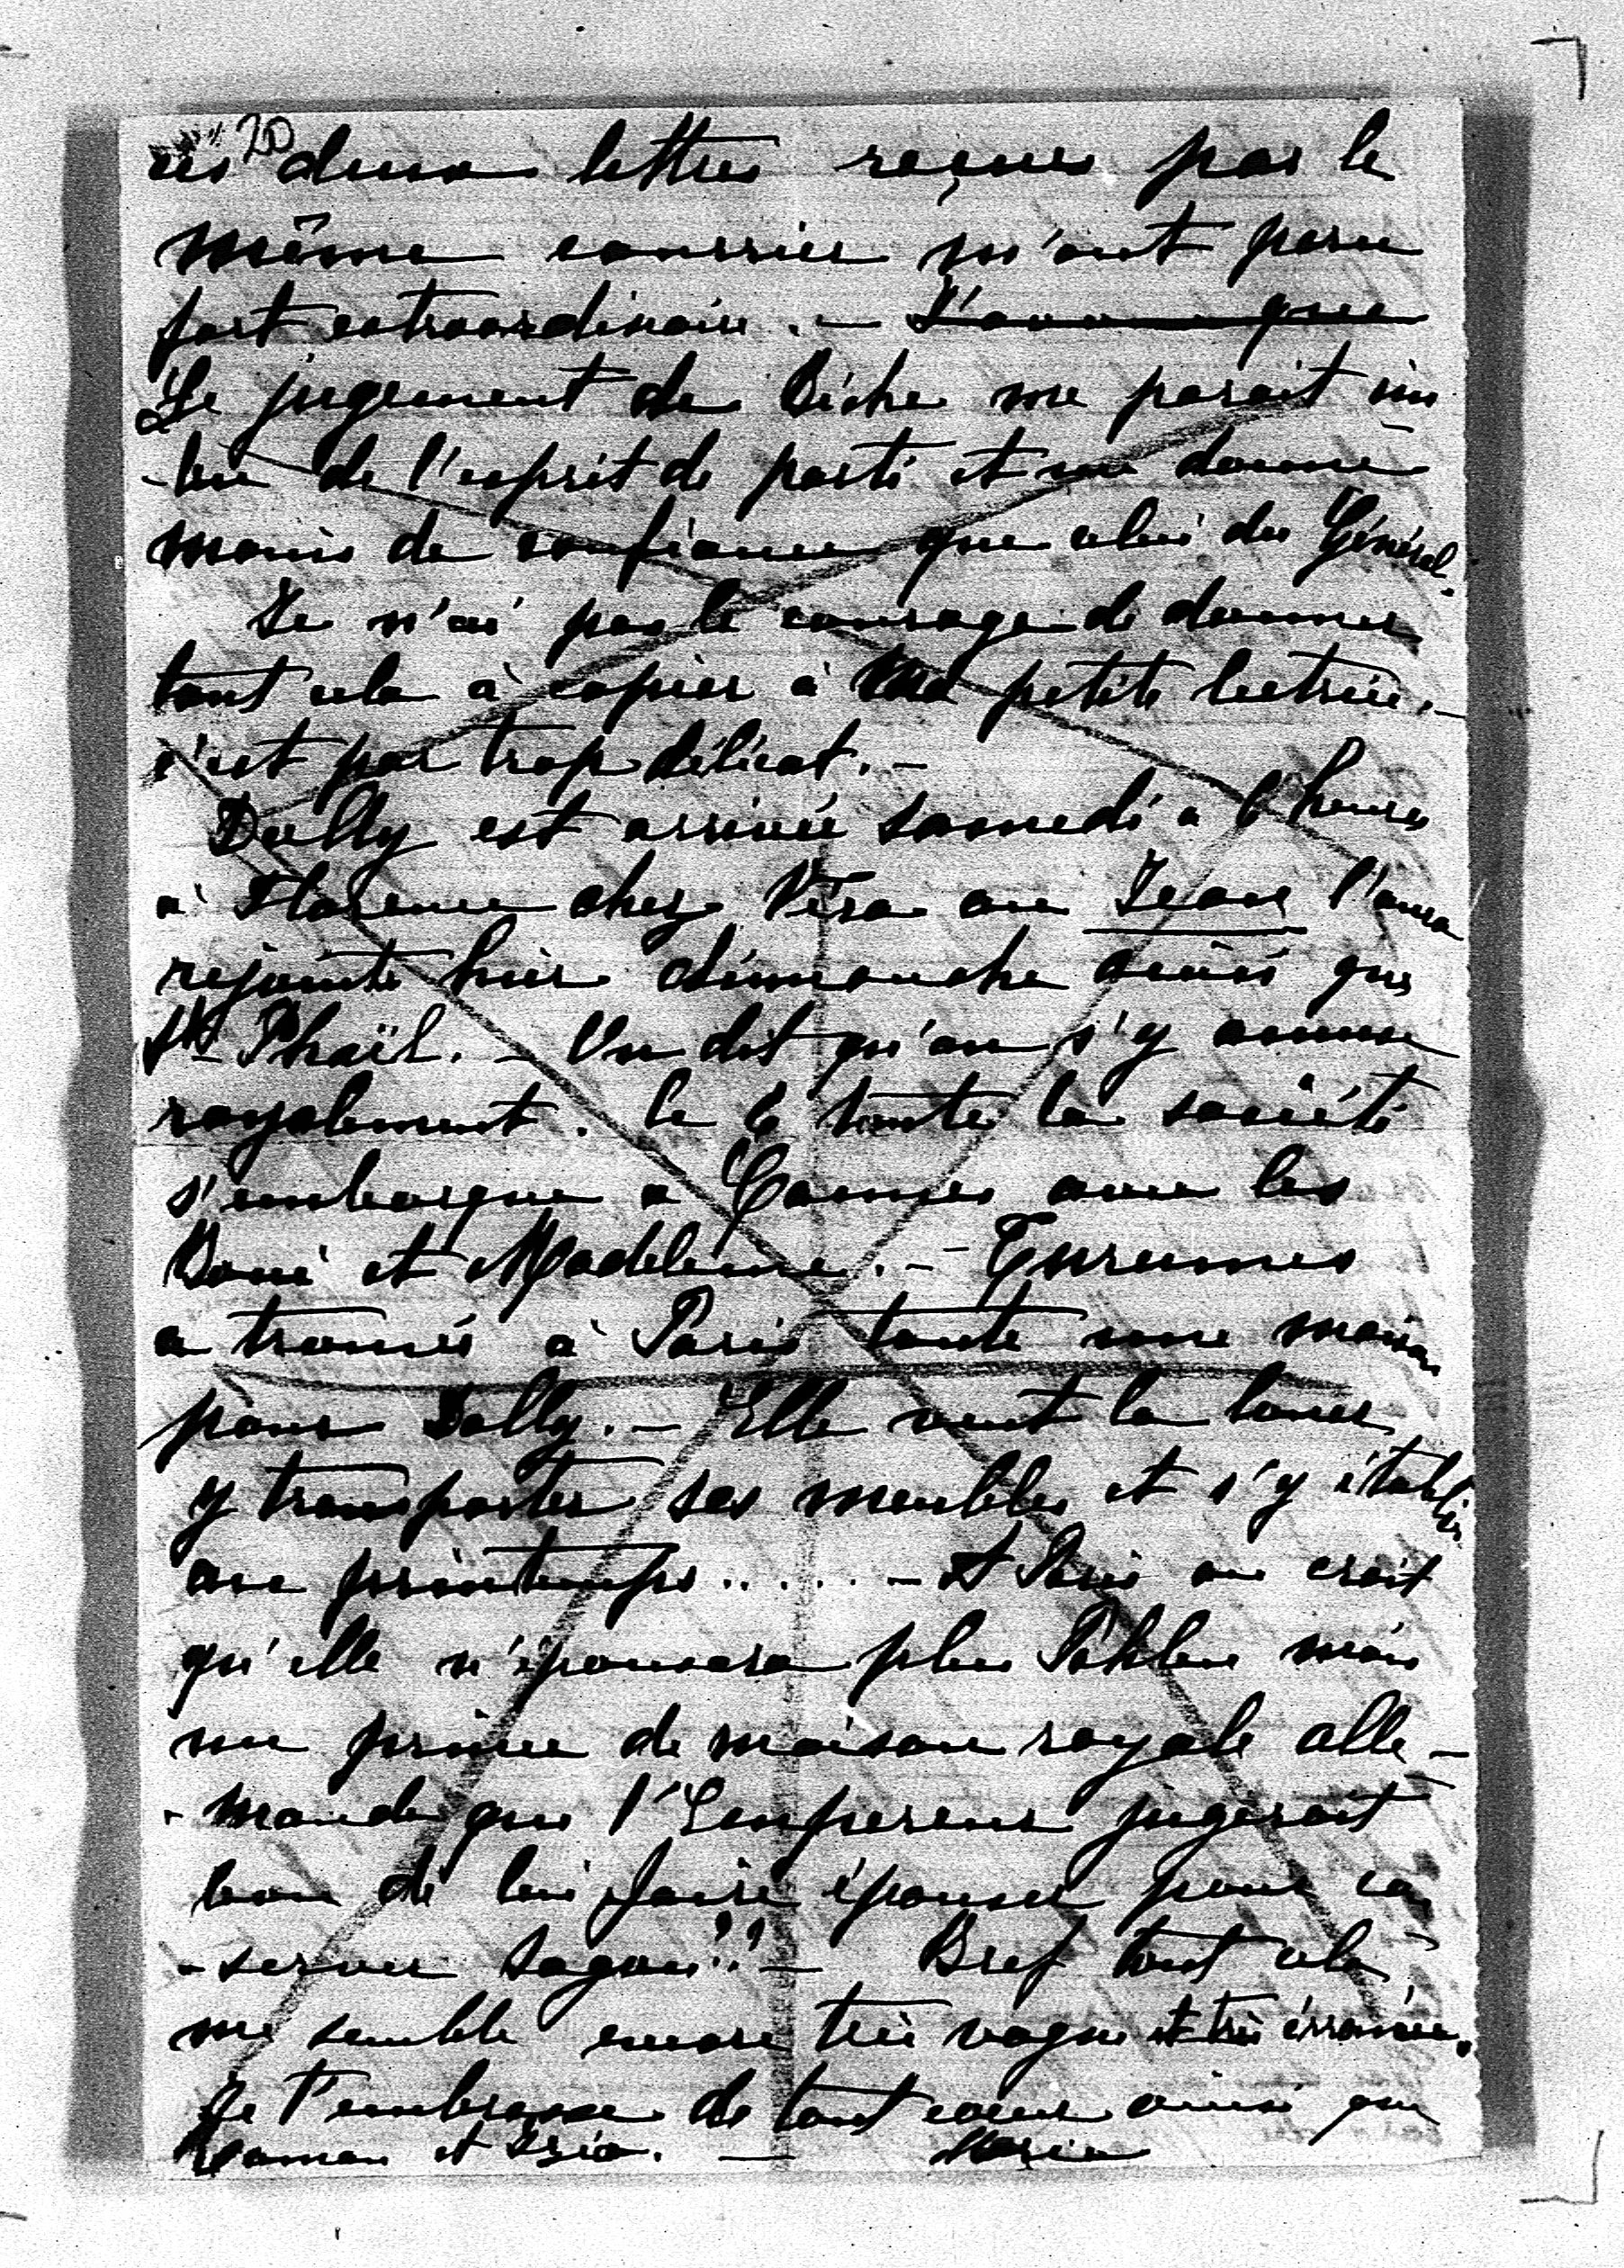 20
ces deux lettres reçues par le
même courrier m'ont paru
fort extraordinaire. —
Le jugement de Biche me parait im
-bu de l'esprit de parti et me donne
moins de confiance que celui du Général.
Je n'ai pas le courage de donner
tout cela à copier à ma petite lectrice. —
c'est par trop délicat. —
Dolly est arrivée samedi à 6 heures
à Florence chez Vera ou Jean l'aura
rejointe hier dimanche ainsi que
St Phaël. — On dit qu'on s'y amuse
royalement. le 6 toute la société
s'embarque a Cannes avec les
et Madeleine. —
a trouvé à Paris toute une maison
pour Dolly. — Elle veut la louer
y transporter ses meubles et s'y établir
au printemps ..... — A Paris on croit
qu'elle n'épousera plus Pahlen mais
un prince de maison royale alle-
-mande que l'Empereur jugerait
bon de lui faire épouser pour con
-server Sagan!! — Bref tout cela
me semble encore très vague et très érronée.
Je t'embrasse de tout coeur ainsi que
Maman et — Marie